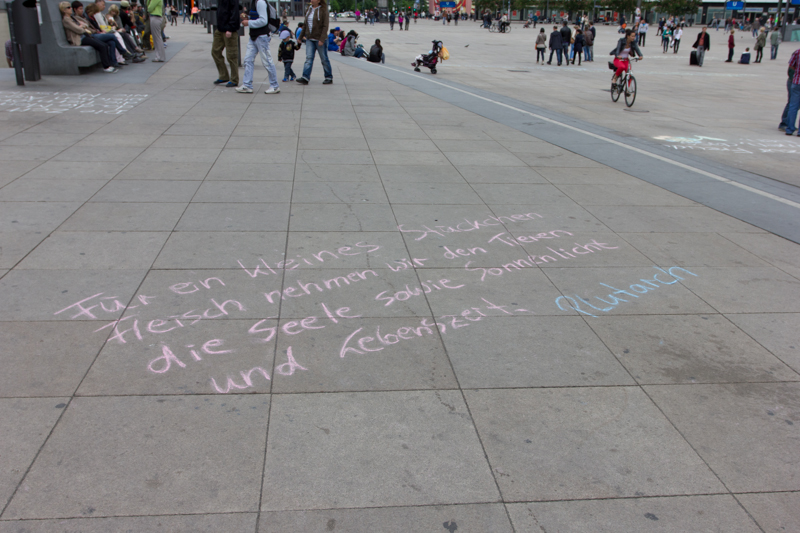 Für ein kleines Stückchen
Fleisch nehmen wir den Tieren
die Seele sowie Sonnenlicht
und Lebenszeit. Plutarch